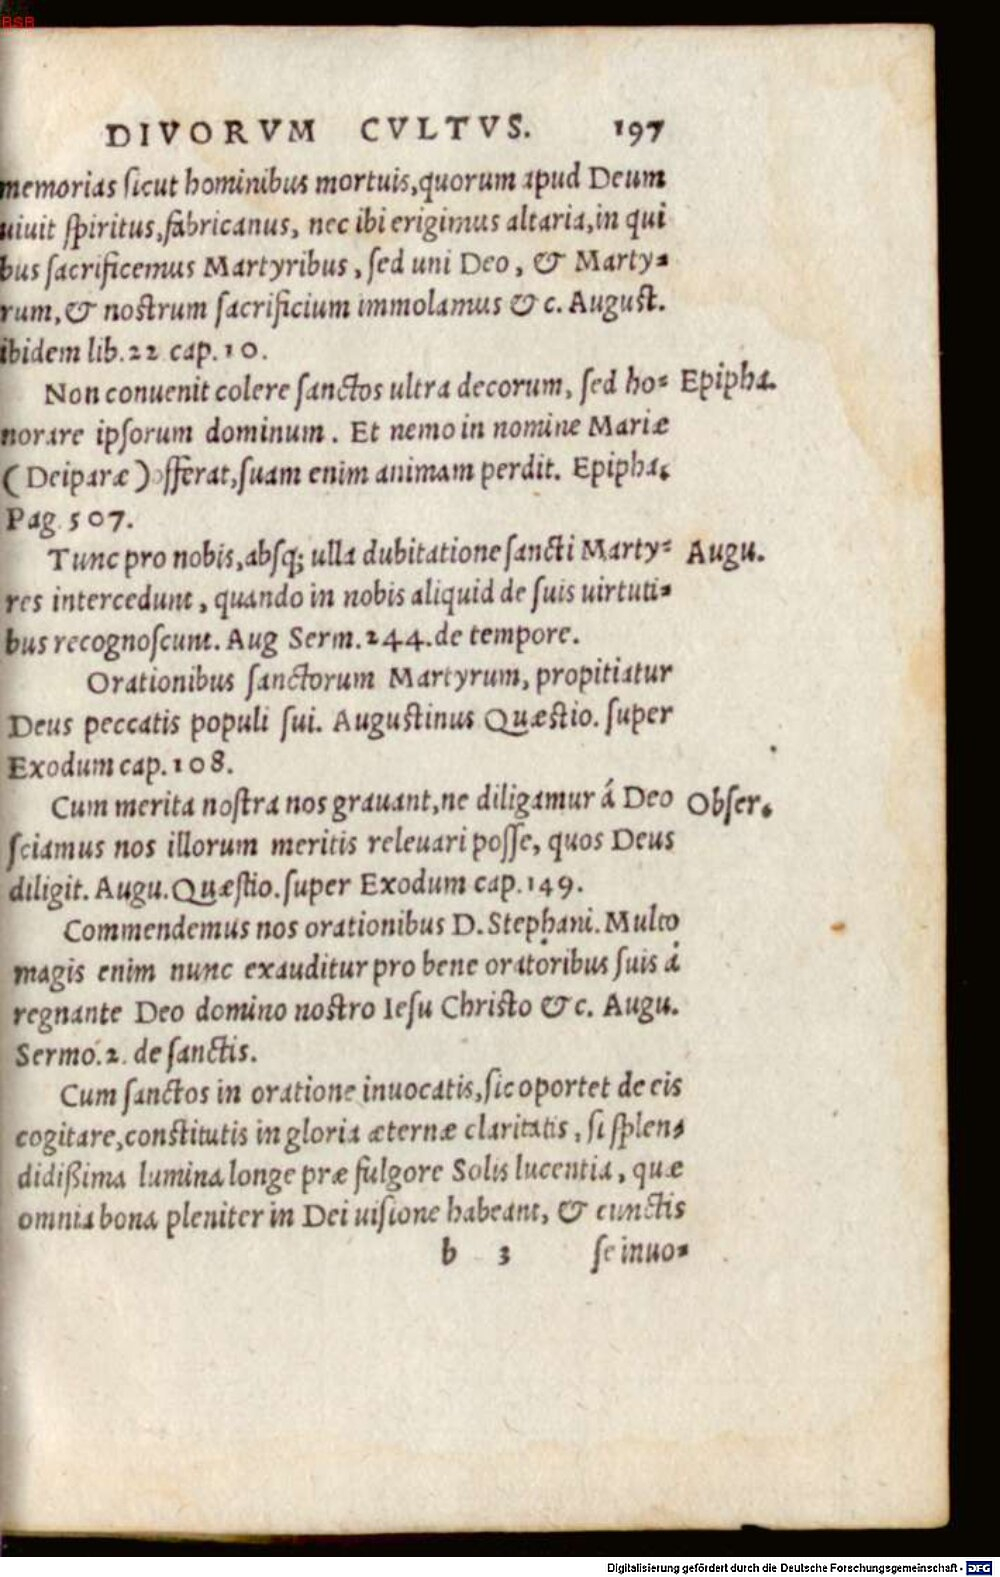 BSB
DIVORVM CVLTVS. 197
memorias sicut hominibus mortuis, quorum apud Deum
uiuit spiritus, fabricanus, nec ibi erigimus altaria, in qui
bus sacrificemus Martyribus, sed uni Deo, & Marty=
rum, & nostrum sacrificium immolamus & c. August.
ibidem lib. 22 cap. 10.
Non conuenit colere sanctos ultra decorum, sed ho= Epipha.
norare ipsorum dominum. Et nemo in nomine Mariæ
(Deiparæ) offerat, suam enim animam perdit. Epipha.
Pag. 507.
Tunc pro nobis, absq; ulla dubitatione sancti Marty= Augu.
res intercedunt, quando in nobis aliquid de suis uirtuti=
bus recognoscunt. Aug Serm. 244. de tempore.
Orationibus sanctorum Martyrum, propitiatur
Deus peccatis populi sui. Augustinus Quæstio. super
Exodum cap. 108.
Cum merita nostra nos grauant, ne diligamur á Deo Obser.
sciamus nos illorum meritis releuari posse, quos Deus
diligit. Augu. Quæstio. super Exodum cap. 149.
Commendemus nos orationibus D. Stephani. Multo
magis enim nunc exauditur pro bene oratoribus suis á
regnante Deo domino nostro Iesu Christo & c. Augu.
Sermo. 2. de sanctis.
Cum sanctos in oratione inuocatis, sic oportet de eis
cogitare, constitutis in gloria æternæ claritatis, si splen=
didißima lumina longe præ fulgore Solis lucentia, quæ
omnia bona pleniter in Dei uisione habeant, & cunctis
b 3 se inuo=
Digitalisierung gefördert durch die Deutsche Forschungsgemeinschaft - DFG